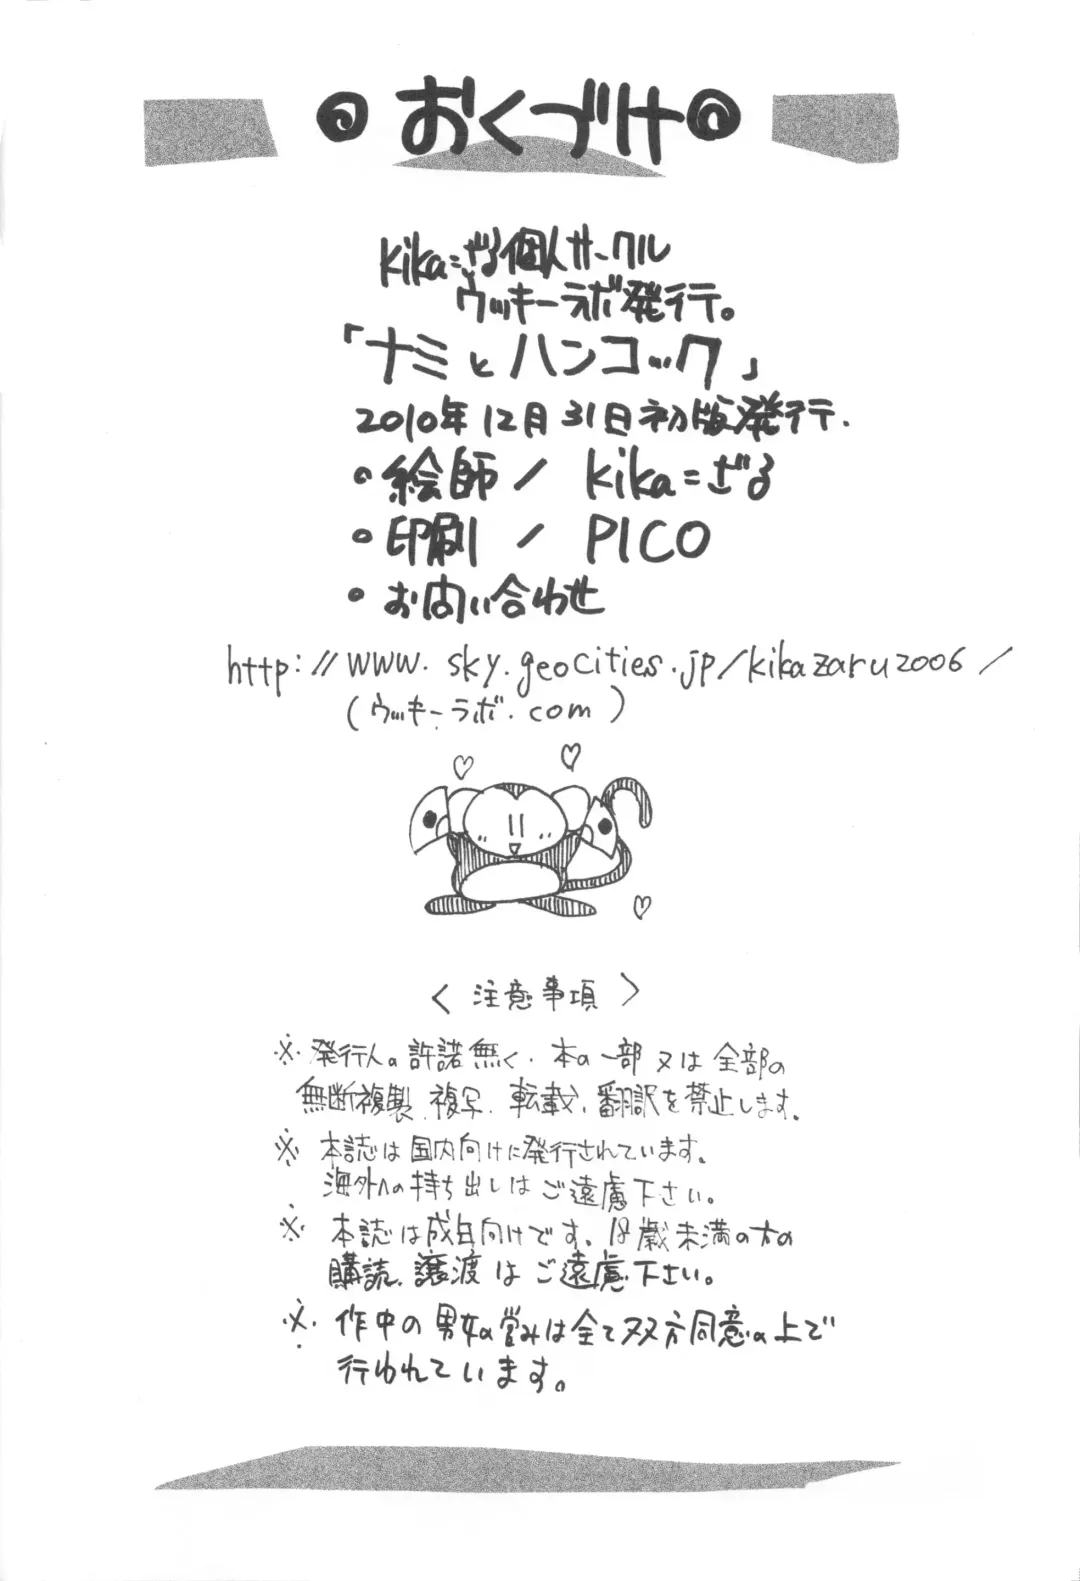 おくづけ
kika=ざる個人サークル
ウッキーラボ発行。
「ナミとハンコック」
2010年12月31日初版発行.
・絵師/ kika=ざる
・印刷/ PICO
・お問い合わせ
http://www.sky.geocities.jp/kikazaru2006/
(ウッキーラボ.com)
<注意事項>
※発行人の許諾無く、本の一部又は全部の
無断複製、複写、転載、翻訳を禁止します。
※本誌は国内向けに発行されています。
海外への持ち出しはご遠慮下さい。
※本誌は成年向けです。18歳未満の方の
購読、譲渡はご遠慮下さい。
※作中の男女の営みは全て双方同意の上で
行われています。